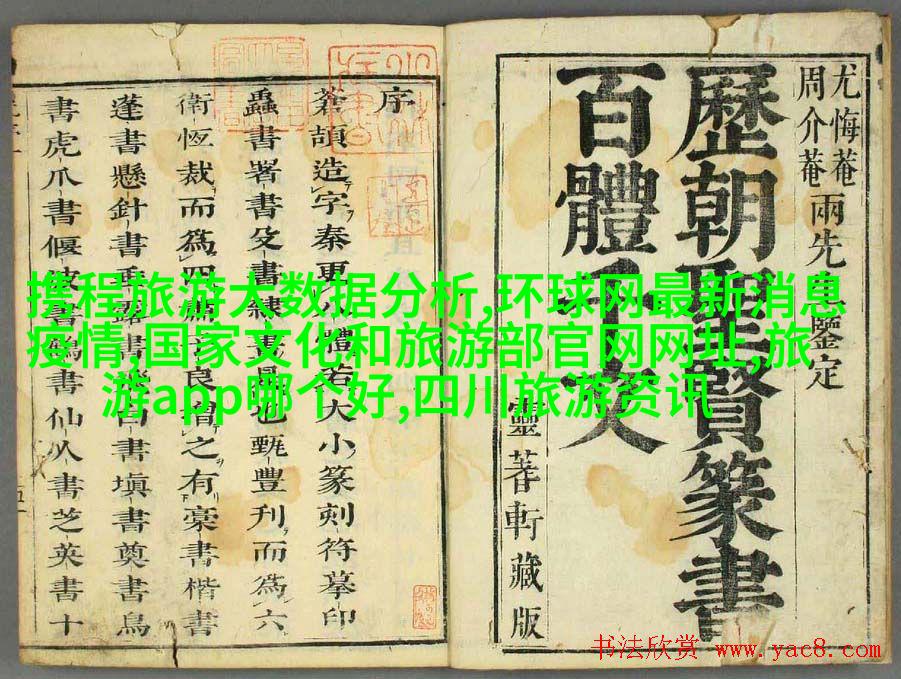 尤悔菴
周介菴
兩先
鑒定
歷朝
賢篆書
百體千文
靈蓍軒藏版
序
蒼頡造字秦更
體若大小篆刻符摹印
蟲書署書殳書隸書
也甄豐刋而爲六
衛恆裁而爲四
良間之有藁書楷書
蓬書懸針書垂露書
書塡書奠書鳥
書虎爪書偃波書
書仙人書芝英書十
携程旅游大数据分析,环球网最新消息
疫情,国家文化和旅游部官网网址,旅
游app哪个好,四川旅游资讯
书法欣赏 www.yac8.com